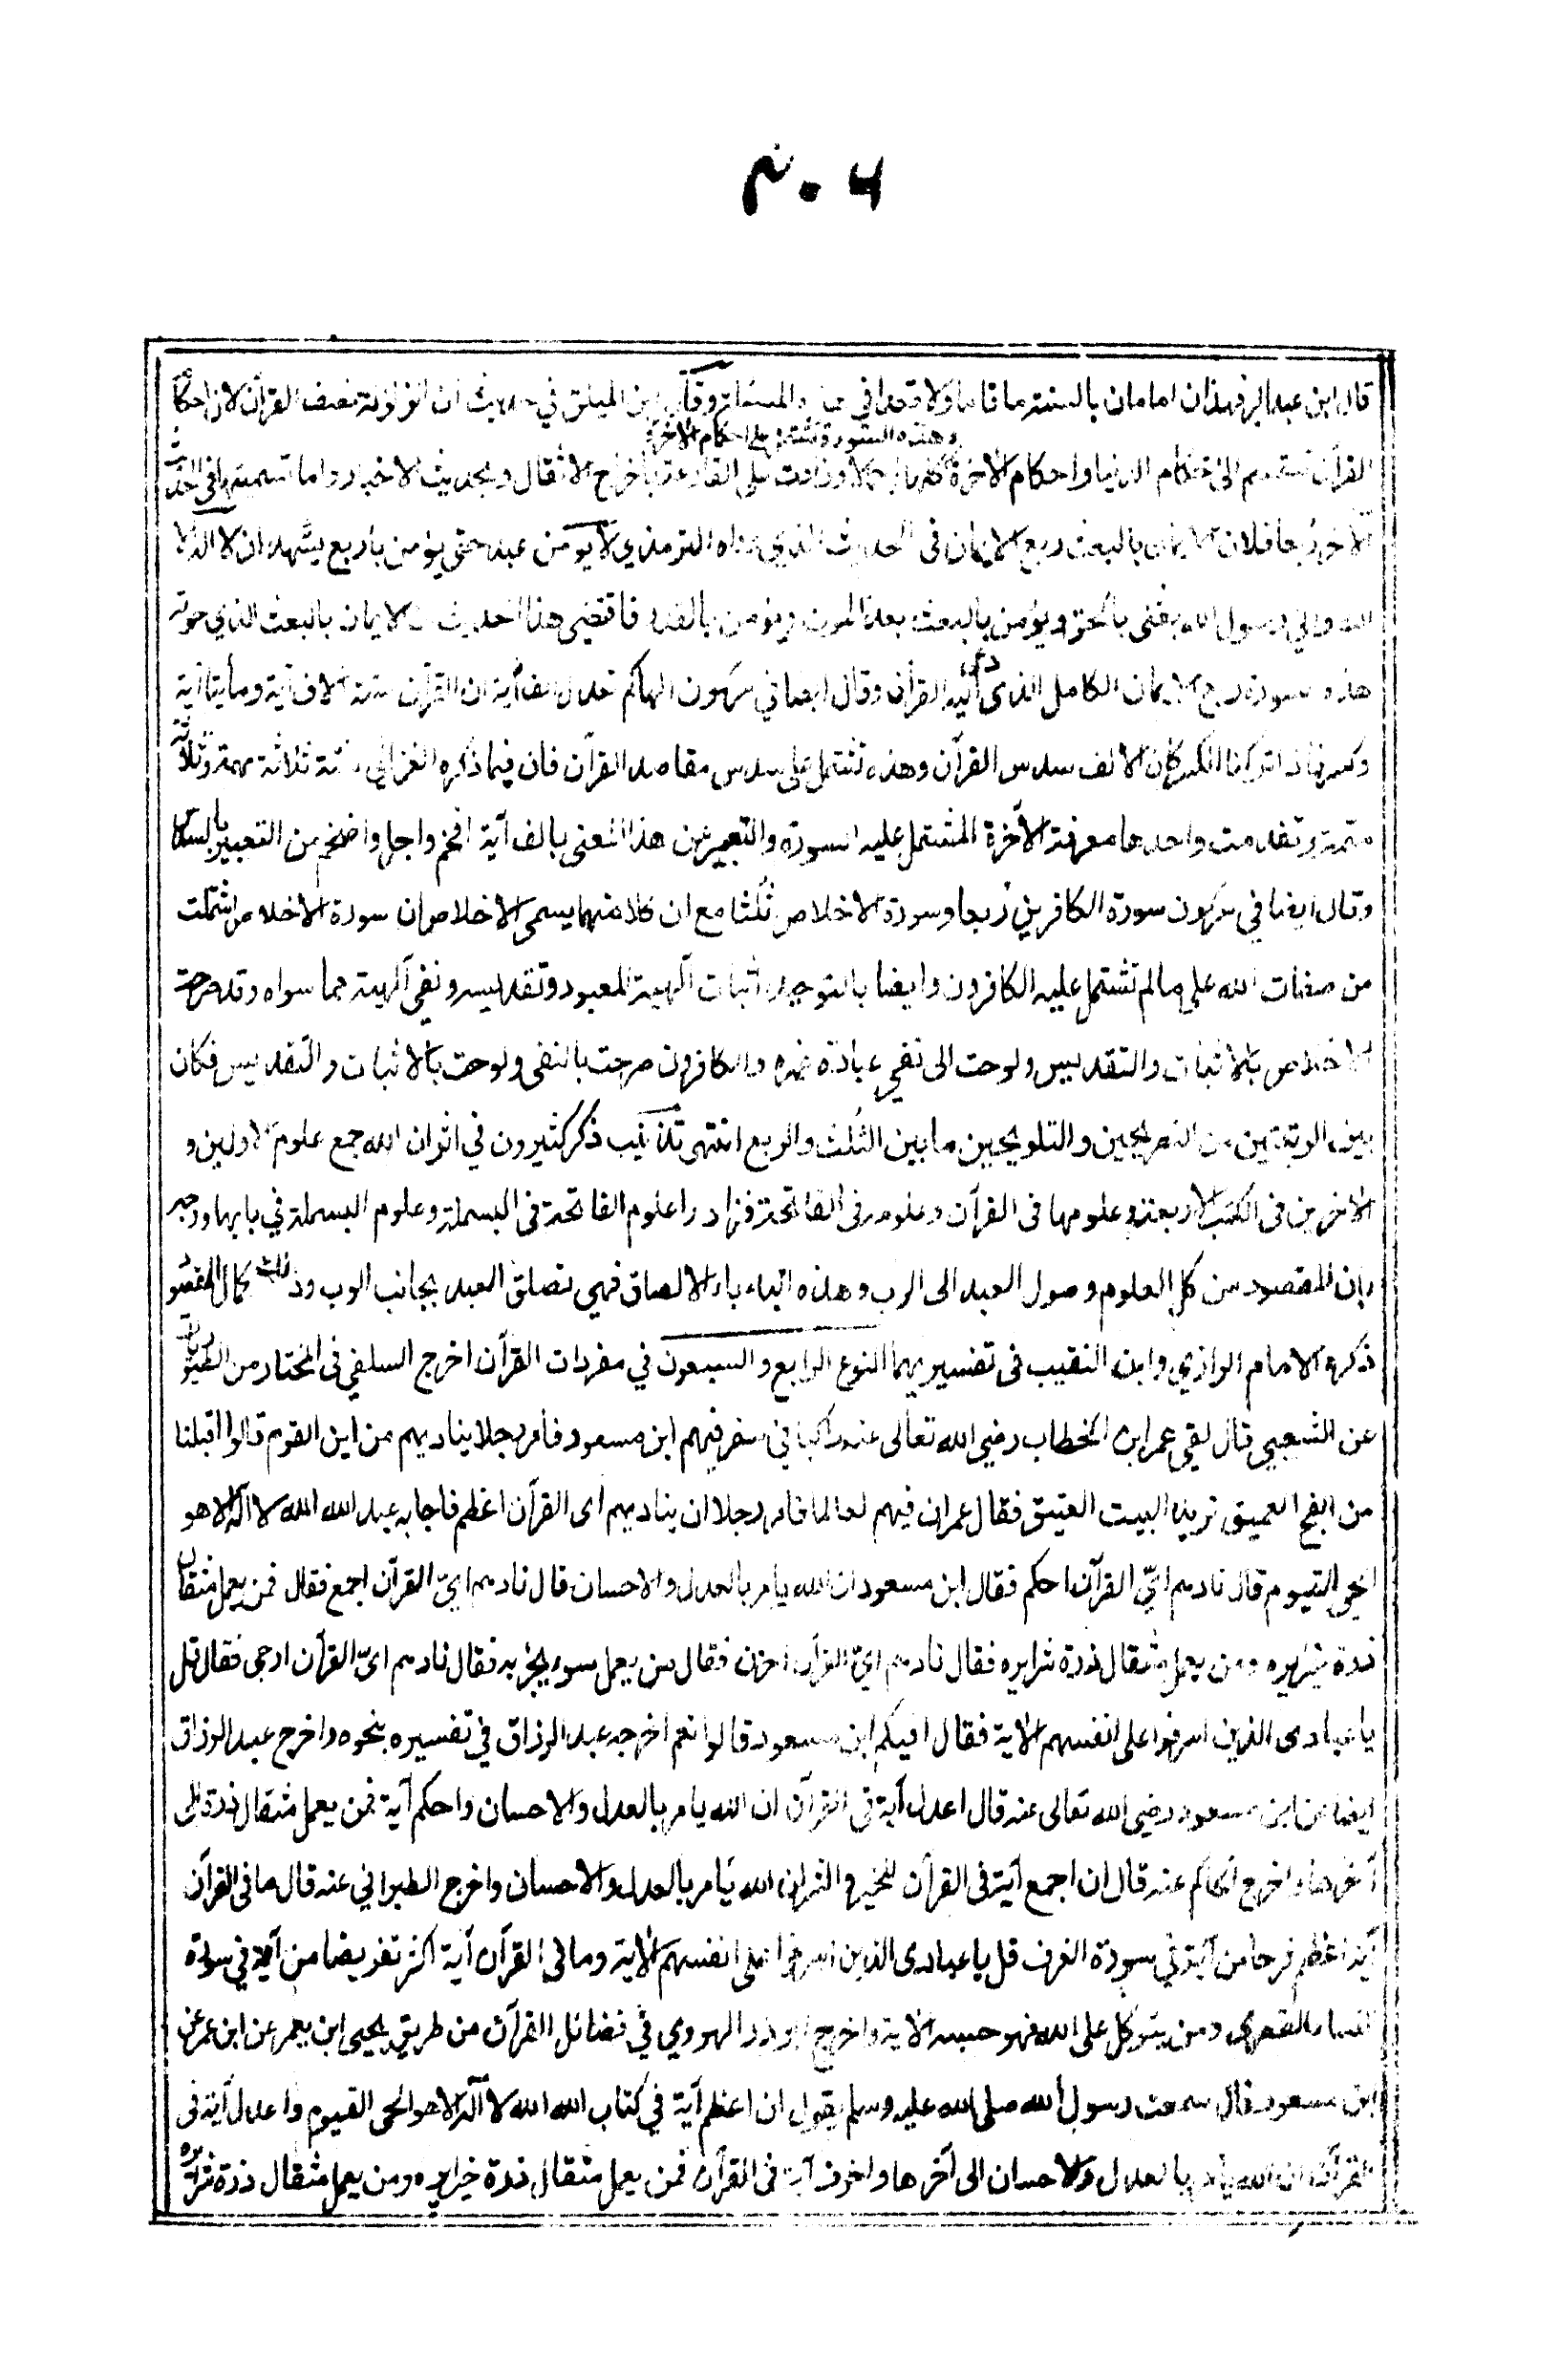 ۴۰۶
قال ابن عبد البر فهذان امامان بالسنة ما قاما ولا قعدا في هذه المسئلة وقال ابن الميلق في حديث ان الزلزلة نصف القرآن لان احكام
وهذه السورة تشتمل على احكام الاخرة
القرآن تنقسم الى احكام الدنيا واحكام الاخرة كلها اجمالا وزادت على القارعة باخراج الاثقال وبحديث الاخبار واما تسميتها في الحديث
الآخر ربعا فلان الايمان بالبعث ربع الايمان في الحديث الذي رواه الترمذي لا يؤمن عبد حتى يؤمن باربع يشهد ان لا اله الا
الله واني رسول الله بعثني بالحق ويؤمن بالموت ويؤمن بالبعث بعد الموت ويؤمن بالقدر فاقتضى هذا الحديث ان الايمان بالبعث الذي قررته
هذه السورة ربع الايمان الكامل الذي دعا اليه القرآن وقال ايضا في سر كون الهاكم تعدل الف آية ان القرآن ستة الاف آية ومأيتا آية
وكسر فاذا تركنا الكسر كان الالف سدس القرآن وهذه تشتمل على سدس مقاصد القرآن فان فيما ذكره الغزالي ستة ثلاثة مهمة وثلاثة
متمة وتقدمت واحدها معرفة الآخرة المشتمل عليه السورة والتعبير عن هذا المعنى بالف آية افخم واجل واضخم من التعبير بالسدس
وقال ايضا في سر كون سورة الكافرين ربعا وسورة الاخلاص ثلثا مع ان كلا منهما يسمى الاخلاص ان سورة الاخلاص اشتملت
من صفات الله على ما لم تشتمل عليه الكافرون وايضا بالتوحيد اثبات آلهية المعبود وتقديسه ونفي آلهية ما سواه وقد صرحت
الاخلاص بالاثبات والتقديس ولوحت الى نفي عبادة غيره والكافرون صرحت بالنفي ولوحت بالاثبات والتقديس فكان
بين الرتبتين من التصريحين والتلويحين ما بين الثلث والربع انتهى تذنيب ذكر كثيرون في اثر ان الله جمع علوم الاولين و
الاخرين في الكتب الاربعة وعلومها في القرآن وعلومه في الفاتحة فزادوا علوم الفاتحة في البسملة وعلوم البسملة في بايها ووجه
بان المقصود من كل العلوم وصول العبد الى الرب وهذه الباء باء الالصاق فهي تصلق العبد بجانب الرب وذلك كمال المقصود
ذكره الامام الرازي وابن النقيب في تفسيريهما النوع الرابع والسبعون في مفردات القرآن اخرج السلفي في المختار من الطيوريات
عن الشعبي قال لقي عمر ابن الخطاب رضي الله تعالى عنه ركبا في سفر فيهم ابن مسعود فامر رجلا يناديهم من اين القوم قالوا اقبلنا
من الفج العميق نريد البيت العتيق فقال عمر ان فيهم لعالما فامر رجلا ان يناديهم اى القرآن اعظم فاجابه عبد الله الله لا اله الا هو
الحي القيوم قال نادهم ايّ القرآن احكم فقال ابن مسعود ان الله يامر بالعدل والاحسان قال نادهم ايّ القرآن اجمع فقال فمن يعمل مثقال
ذرة خيرا يره ومن يعمل مثقال ذرة شرا يره فقال نادهم ايّ القرآن احزن فقال من يعمل سوء يجز به فقال نادهم ايّ القرآن ارجى فقال قل
يا عبادى الذين اسرفوا على انفسهم الاية فقال افيكم ابن مسعود قالوا نعم اخرجه عبد الرزاق في تفسيره بنحوه واخرج عبد الرزاق
ايضا عن ابن مسعود رضي الله تعالى عنه قال اعدل آية في القرآن ان الله يامر بالعدل والاحسان واحكم آية فمن يعمل مثقال ذرة الى
آخرها واخرج الحاكم عنه قال ان اجمع آية في القرآن للخير والشر ان الله يامر بالعدل والاحسان واخرج الطبراني عنه قال ما في القرآن
آية اعظم فرحا من آية في سورة الغرف قل يا عبادى الذين اسرفوا على انفسهم الاية وما في القرآن آية اكثر تفويضا من آية في سورة
النساء القصرى ومن يتوكل على الله فهو حسبه الاية واخرج ابو ذر الهروي في فضائل القرآن من طريق يحيى ابن يعمر عن ابن عمر عن
ابن مسعود قال سمعت رسول الله صلى الله عليه وسلم يقول ان اعظم آية في كتاب الله الله لا اله الا هو الحي القيوم واعدل آية في
القرآن ان الله يامر بالعدل والاحسان الى آخرها واخوف آية في القرآن فمن يعمل مثقال ذرة خيرا يره ومن يعمل مثقال ذرة شرا يره